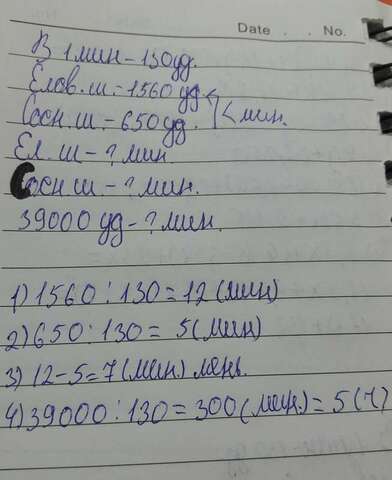 Date . . No.
В 1 мин - 130 уд.
Елов. ш. - 1560 уд
Сосн. ш. - 650 уд. < мин.
Ел. ш - ? мин.
Сосн ш. - ? мин.
39000 уд - ? мин.
1) 1560 : 130 = 12 (мин)
2) 650 : 130 = 5 (мин)
3) 12 - 5 = 7 (мин)
4) 39000 : 130 = 300 (мин.) = 5 (ч)